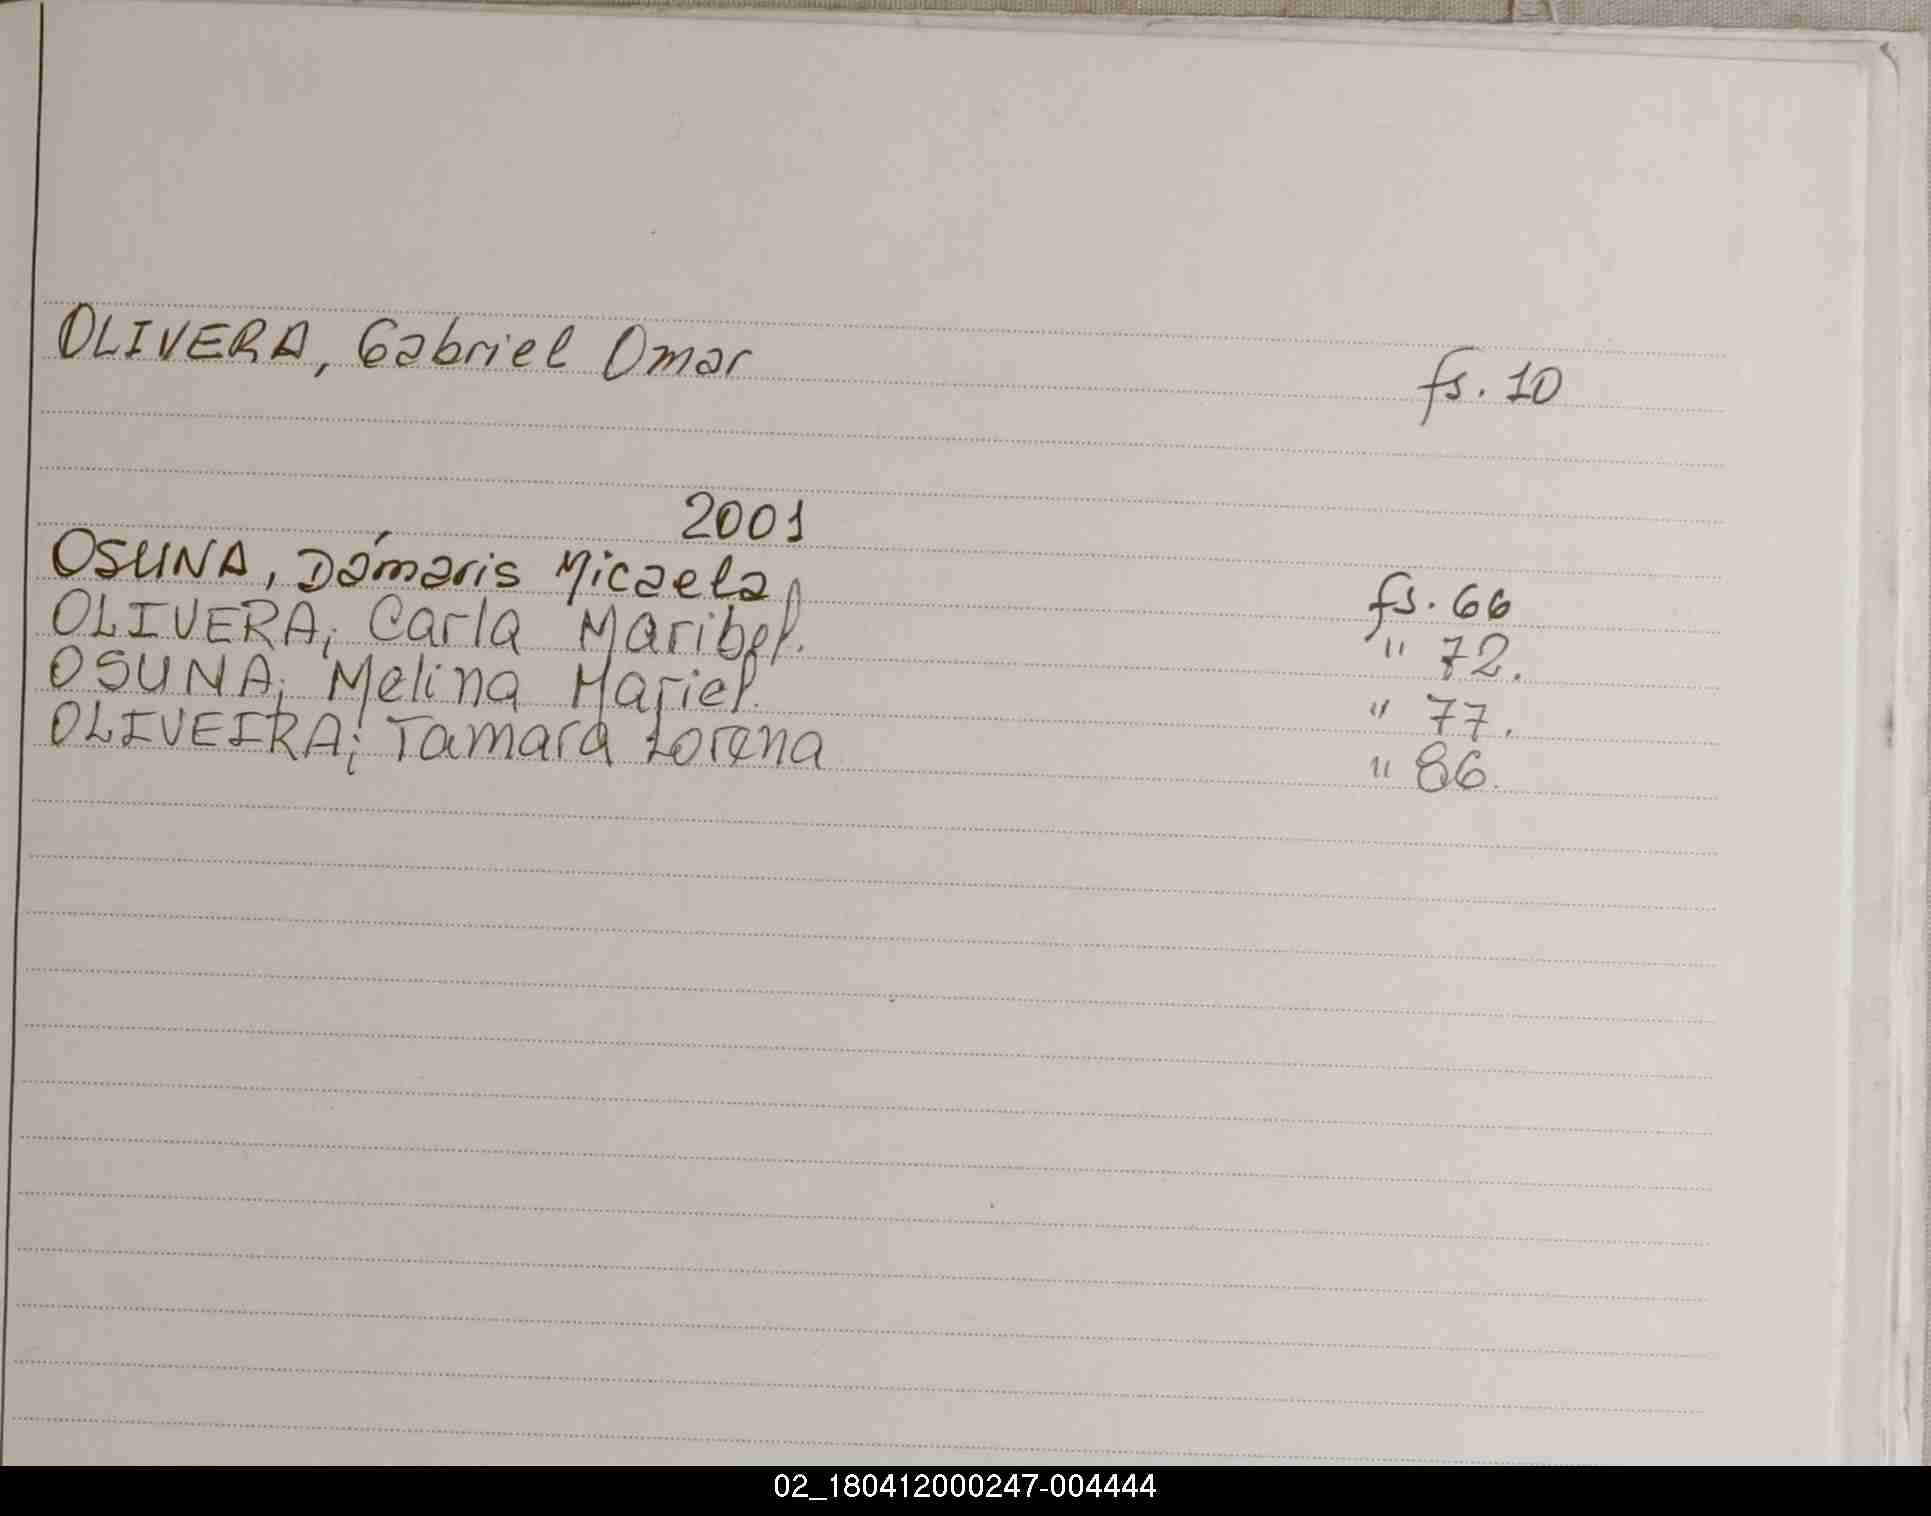 OLIVERA, Gabriel Omar fs. 10
2001
OSUNA, Dámaris Micaela fs. 66
OLIVERA, Carla Maribel. " 72.
OSUNA, Melina Mariel. " 77.
OLIVEIRA, Tamara Lorena " 86.
02_180412000247-004444